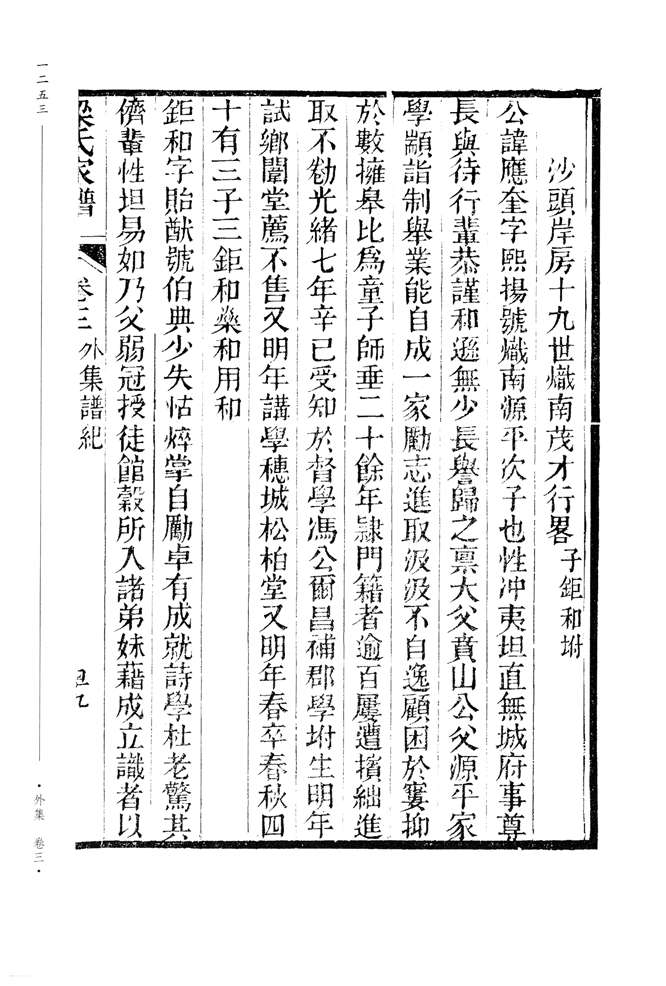 沙頭岸房十九世熾南茂才行畧 子鉅和坿
公諱應奎字熙揚號熾南源平次子也性冲夷坦直無城府事尊
長與待行輩恭謹和遜無少長譽歸之禀大父賁山公父源平家
學顓詣制舉業能自成一家勵志進取汲汲不自逸顧困於窶抑
於數擁皋比爲童子師垂二十餘年隷門籍者逾百屢遭擯絀進
取不勌光緒七年辛巳受知於督學馮公爾昌補郡學坿生明年
試鄉闈堂薦不售又明年講學穗城松柏堂又明年春卒春秋四
十有三子三鉅和燊和用和
鉅和字貽猷號伯典少失怙焠掌自勵卓有成就詩學杜老驚其
儕輩性坦易如乃父弱冠授徒館穀所入諸弟妹藉成立識者以
梁氏家譜 卷三 外集譜紀
一二五三
·外集 卷三·